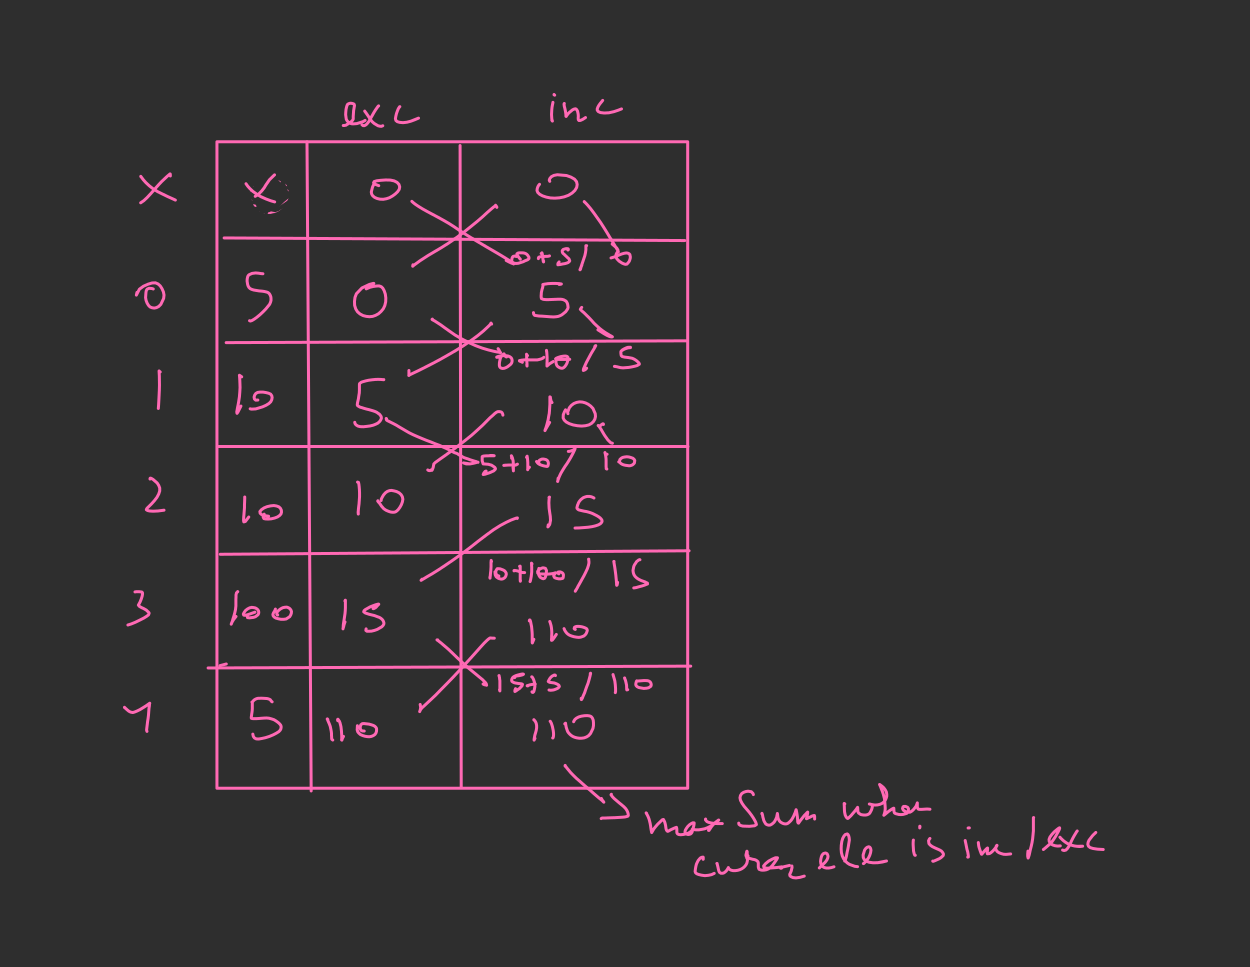 exc inc
x x 0 0
0+5/ 0
0 5 0 5
0+10 / 5
1 10 5 10
5+10/ 10
2 10 10 15
10+100/ 15
3 100 15 110
15+5 / 110
4 5 110 110
max Sum when
curr ele is inc/exc